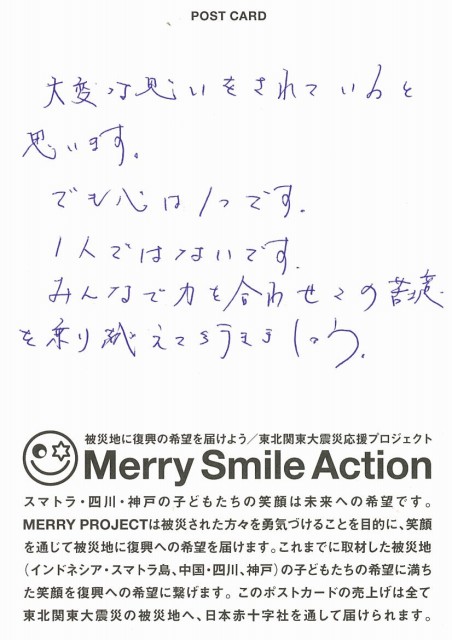 POST CARD
大変な思いをされていると
思います。
でも心は1つです。
1人ではないです。
みんなで力を合わせこの苦境
を乗り越えて
ましょう。
被災地に復興の希望を届けよう／東北関東大震災応援プロジェクト
Merry Smile Action
スマトラ・四川・神戸の子どもたちの笑顔は未来への希望です。
MERRY PROJECTは被災された方々を勇気づけることを目的に、笑顔
を通じて被災地に復興への希望を届けます。これまでに取材した被災地
（インドネシア・スマトラ島、中国・四川、神戸）の子どもたちの希望に満ち
た笑顔を復興への希望に繋げます。このポストカードの売上げは全て
東北関東大震災の被災地へ、日本赤十字社を通して届けられます。